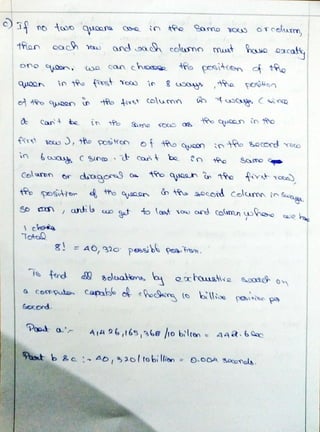 c) If no two queens are in the same row or column,
then each row and each column must have excatly
one queen. we can choose the position of the
queen in the first row in 8 ways, the position
of the queen in the first column in 7 ways ( since
it can't be in the same row as the queen in the
first row ), the position of the queen in the second row
in 6 ways ( since it can't be in the same
column or diagonal as the queen in the first row),
the position of the queen in the second column in 5 ways,
so on, until we get to last row and column where we have
1 choice
Total
8! = 40,320 possible position.
To find all soluations by exchaustive search on
a computer capable of checking 10 billion position per
second.
Part a :- 4,426,165,368 /10 billion = 442.6 sec
Part b & c :- 40,320/10 billion = 0.004 seconds.